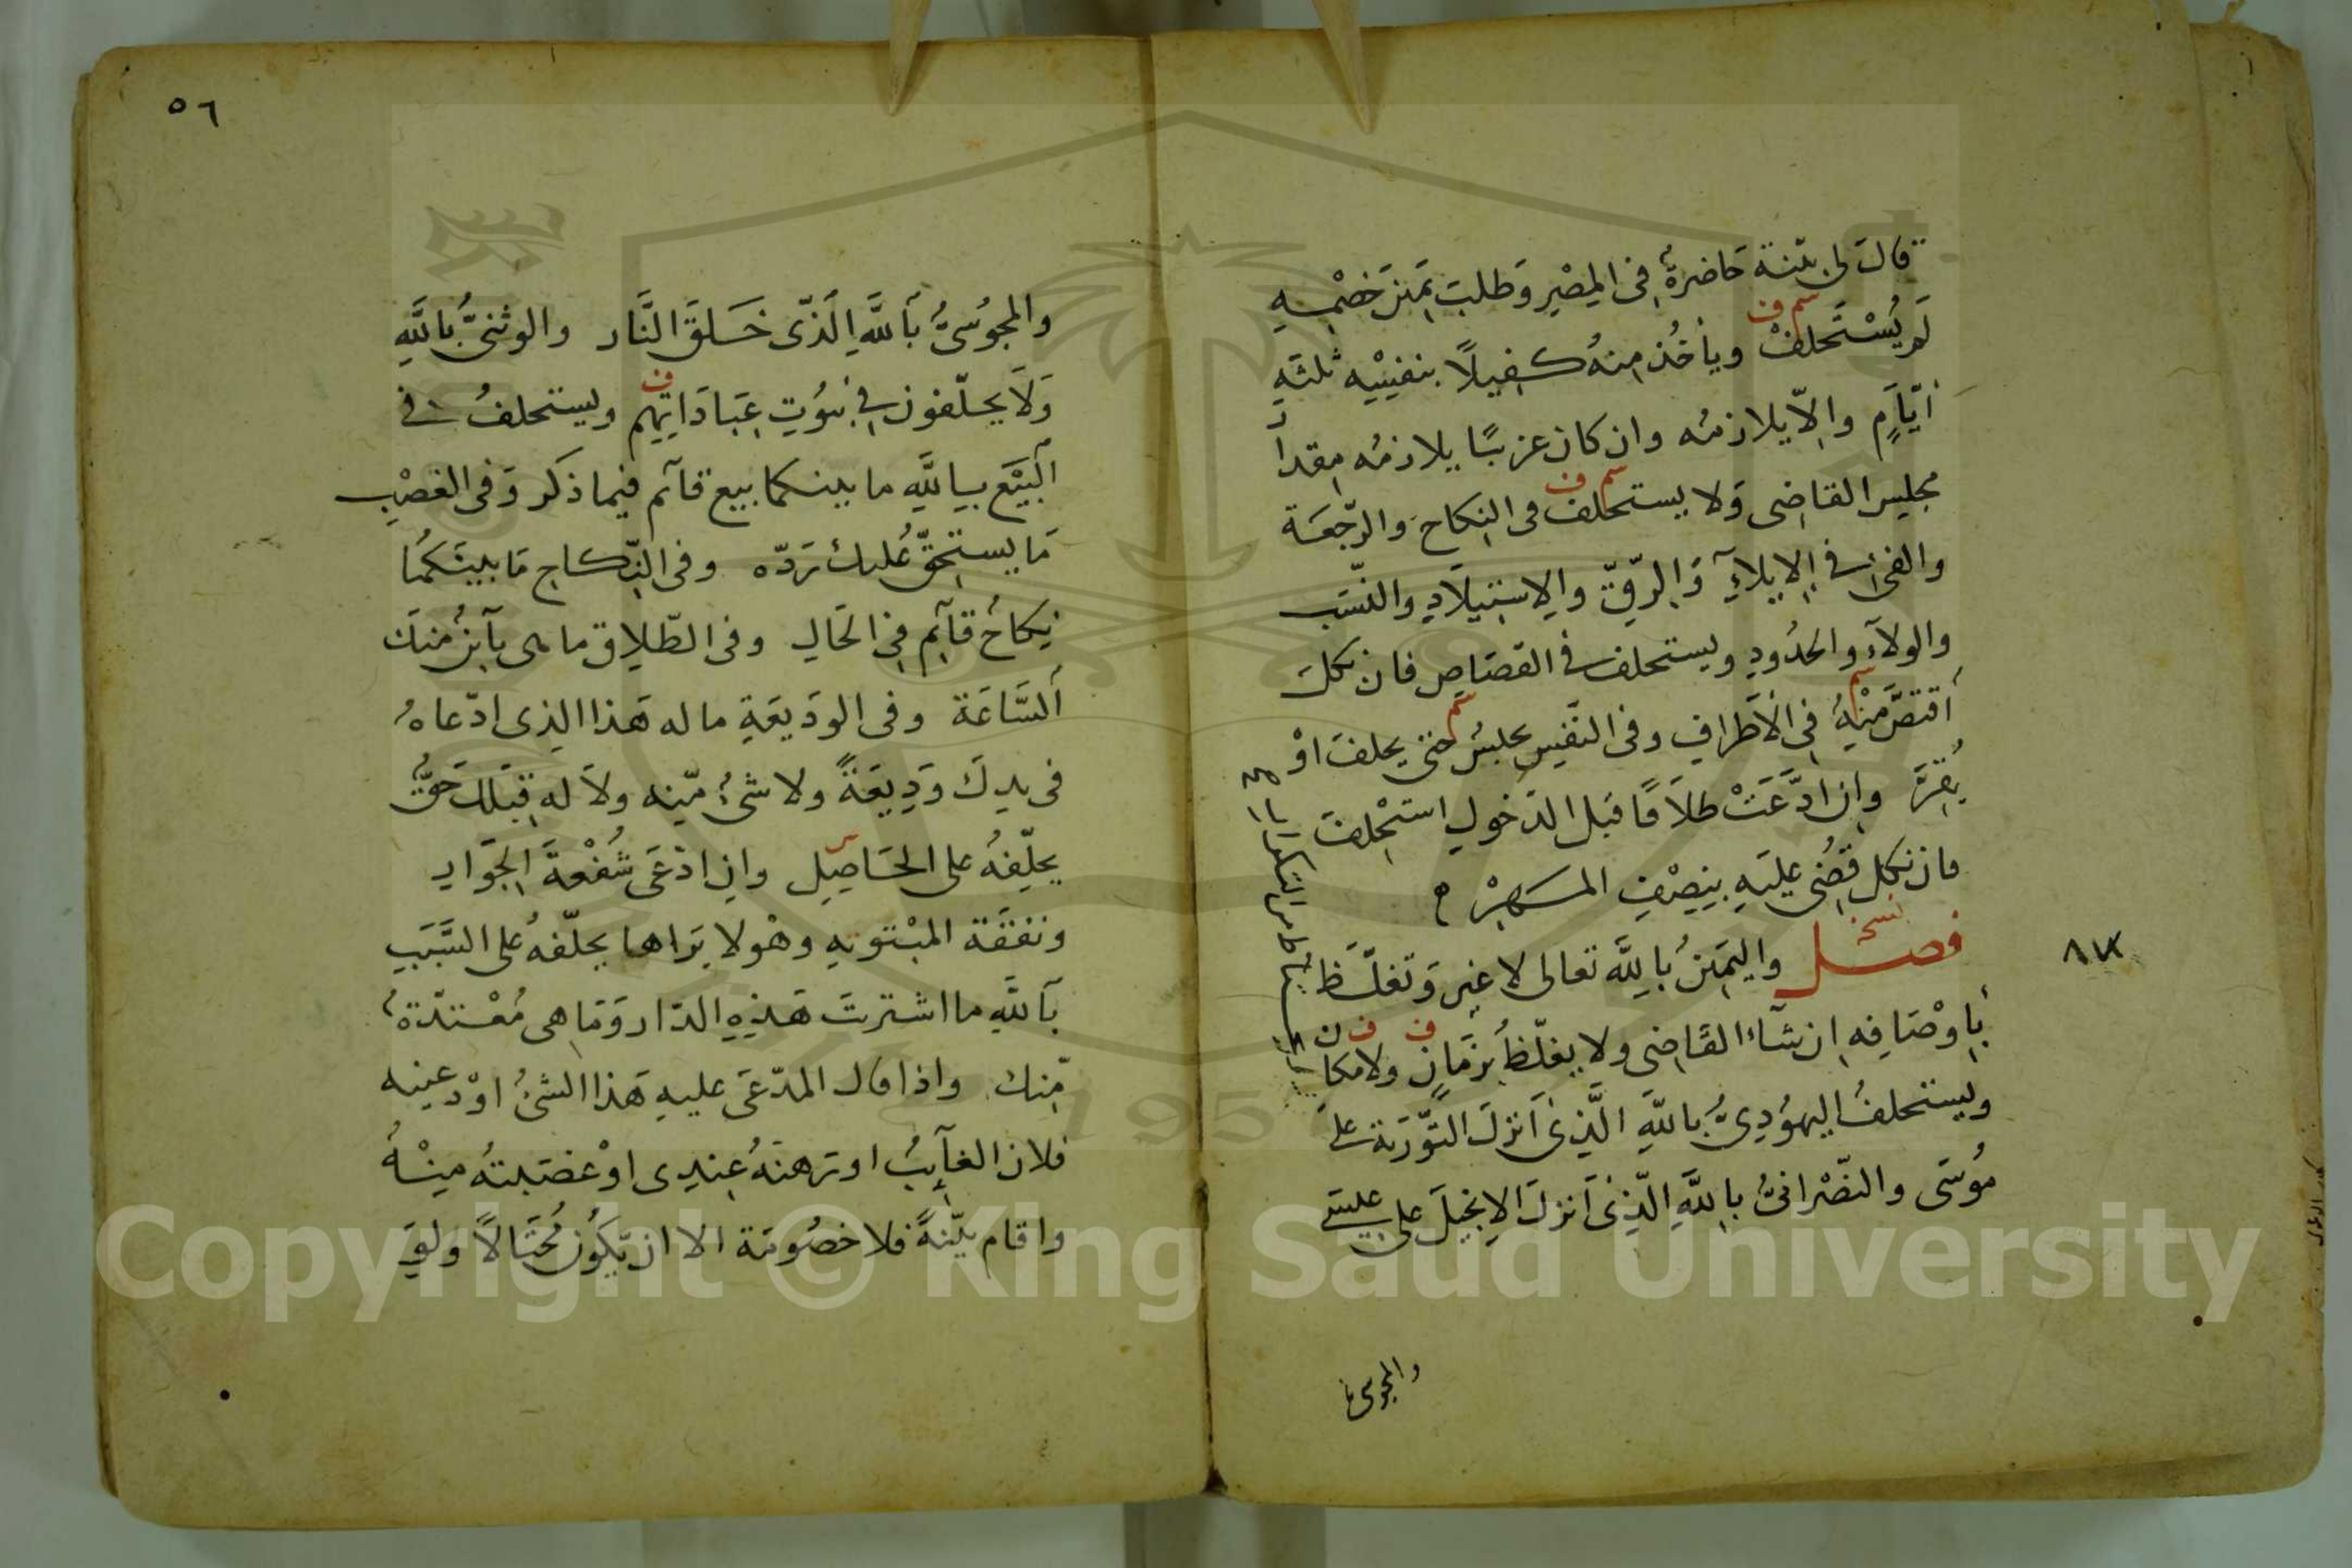 قالَ لى بيّنة حَاضرةٌ فى المِصْرِ وَطلبَ يَمِينَ خَصْمِهِ
لَم يُسْتَحلفْ وياخُذ مِنهُ كَفِيلاً بنفسِه ثلثةِ
سم ف
أيّامٍ والاّ يلازمُه وان كان غريبًا يلازمُه مِقدارَ
مجلِسِ القاضى وَلا يستحلف فى النِكاح والرّجعَة
سم ف
والفئ فى الإيلاءِ وَالرّقّ والاِستيلادِ والنّسَب
والولاءِ والحدُودِ ويستحلف فى القصَاصِ فان نكلَ
أقتصَّ مِنْهُ فى الأطرافِ وفى النَّفسِ يحبسُ حتى يحلفَ اوْ
سم
سم
يُقِرَّ وإن ادَّعَتْ طلاَقًا قبل الدّخولِ استُحْلفَ
فان نكل قضُى عليَهِ بنِصْفِ المَهْرِ
فصــل واليَمِينُ باللَّه تعالى لا غير وَتغلّظ
بأوْصَافِهِ ان شَآءَ القَاضِى ولا يغلّظُ بزمَانٍ ولا مكان
ف ف
ويستحلفُ اليهوُدِىُّ باللَّهِ الَّذِى أنزلَ التَّوْرَيةَ على
مُوسَى والنصْرانىُّ باللَّهِ الَّذِى أنزلَ الاِنجيلَ على عيسَى
والمجوسى
٨٧
٥٦
والمجوُسىُّ بآللَّهِ الَذّى خَلقَ النَّار والوثنىُّ باللَّهِ
وَلاَ يحلّفون فى بيُوتِ عِبَادَاتِهِم ويستحلفُ فى
ف
البَيْعِ باللَّهِ ما بينكما بيع قآئم فيما ذكر وَفى الغصْبِ
مَا يستحِقّ عليك رَدّه وفى النِّكاح مَا بينَكمُا
نِكاحُ قآئم فى الحَالِ وفى الطّلاِق ما هى بآئنُ منكَ
ألسَّاعَة وفى الودَيعَةِ ما له هَذا الذى ادّعاهُ
فى يدِكَ وَدِيعَةً ولا شىُء مّنه ولاَ له قبَلك حَقُّ
يحلّفِهُ على الحَاصِلِ وان ادّعَى شُفْعَةَ الجَوَارِ
س
ونفقَة المبْتوتةِ وهْو لا يَراها يحلّفهُ على السَّبَبِ
بآللَّهِ ما اشتريتَ هَذِهِ الدّار وَمَا هى مُعْتدّةٌ
مّنك واذا قال المدّعَى عليهِ هَذا الشىُ اوْدعنِيه
فلان الغآئِبُ او رَهنَهُ عِنِدى اوْ غصَبتهُ مِنْهُ
واقام بيّنَةً فلا خصُومَة الا ان يَّكوُن مُحْتَالاً ولوَ
Copyright © King Saud University